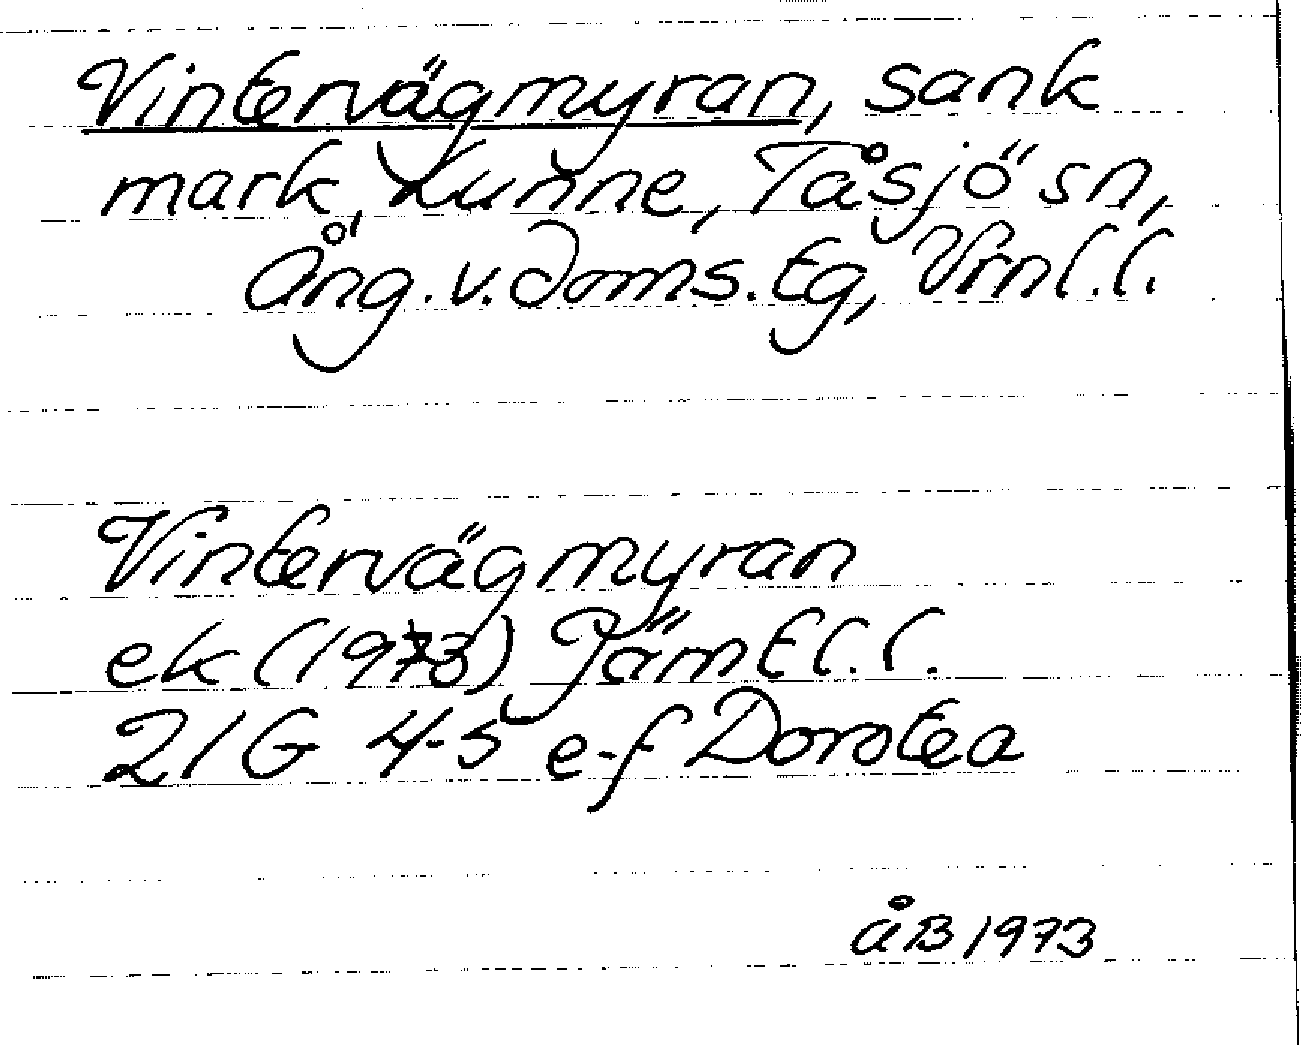 Vintervägmyran, sank
mark, Kunne, Tåsjö sn,
Ång. v. doms. tg, Vrnl. l.
Vintervägmyran
ek (1973) Jämtl. l.
21G 4-5 e-f Dorotea
åB 1973